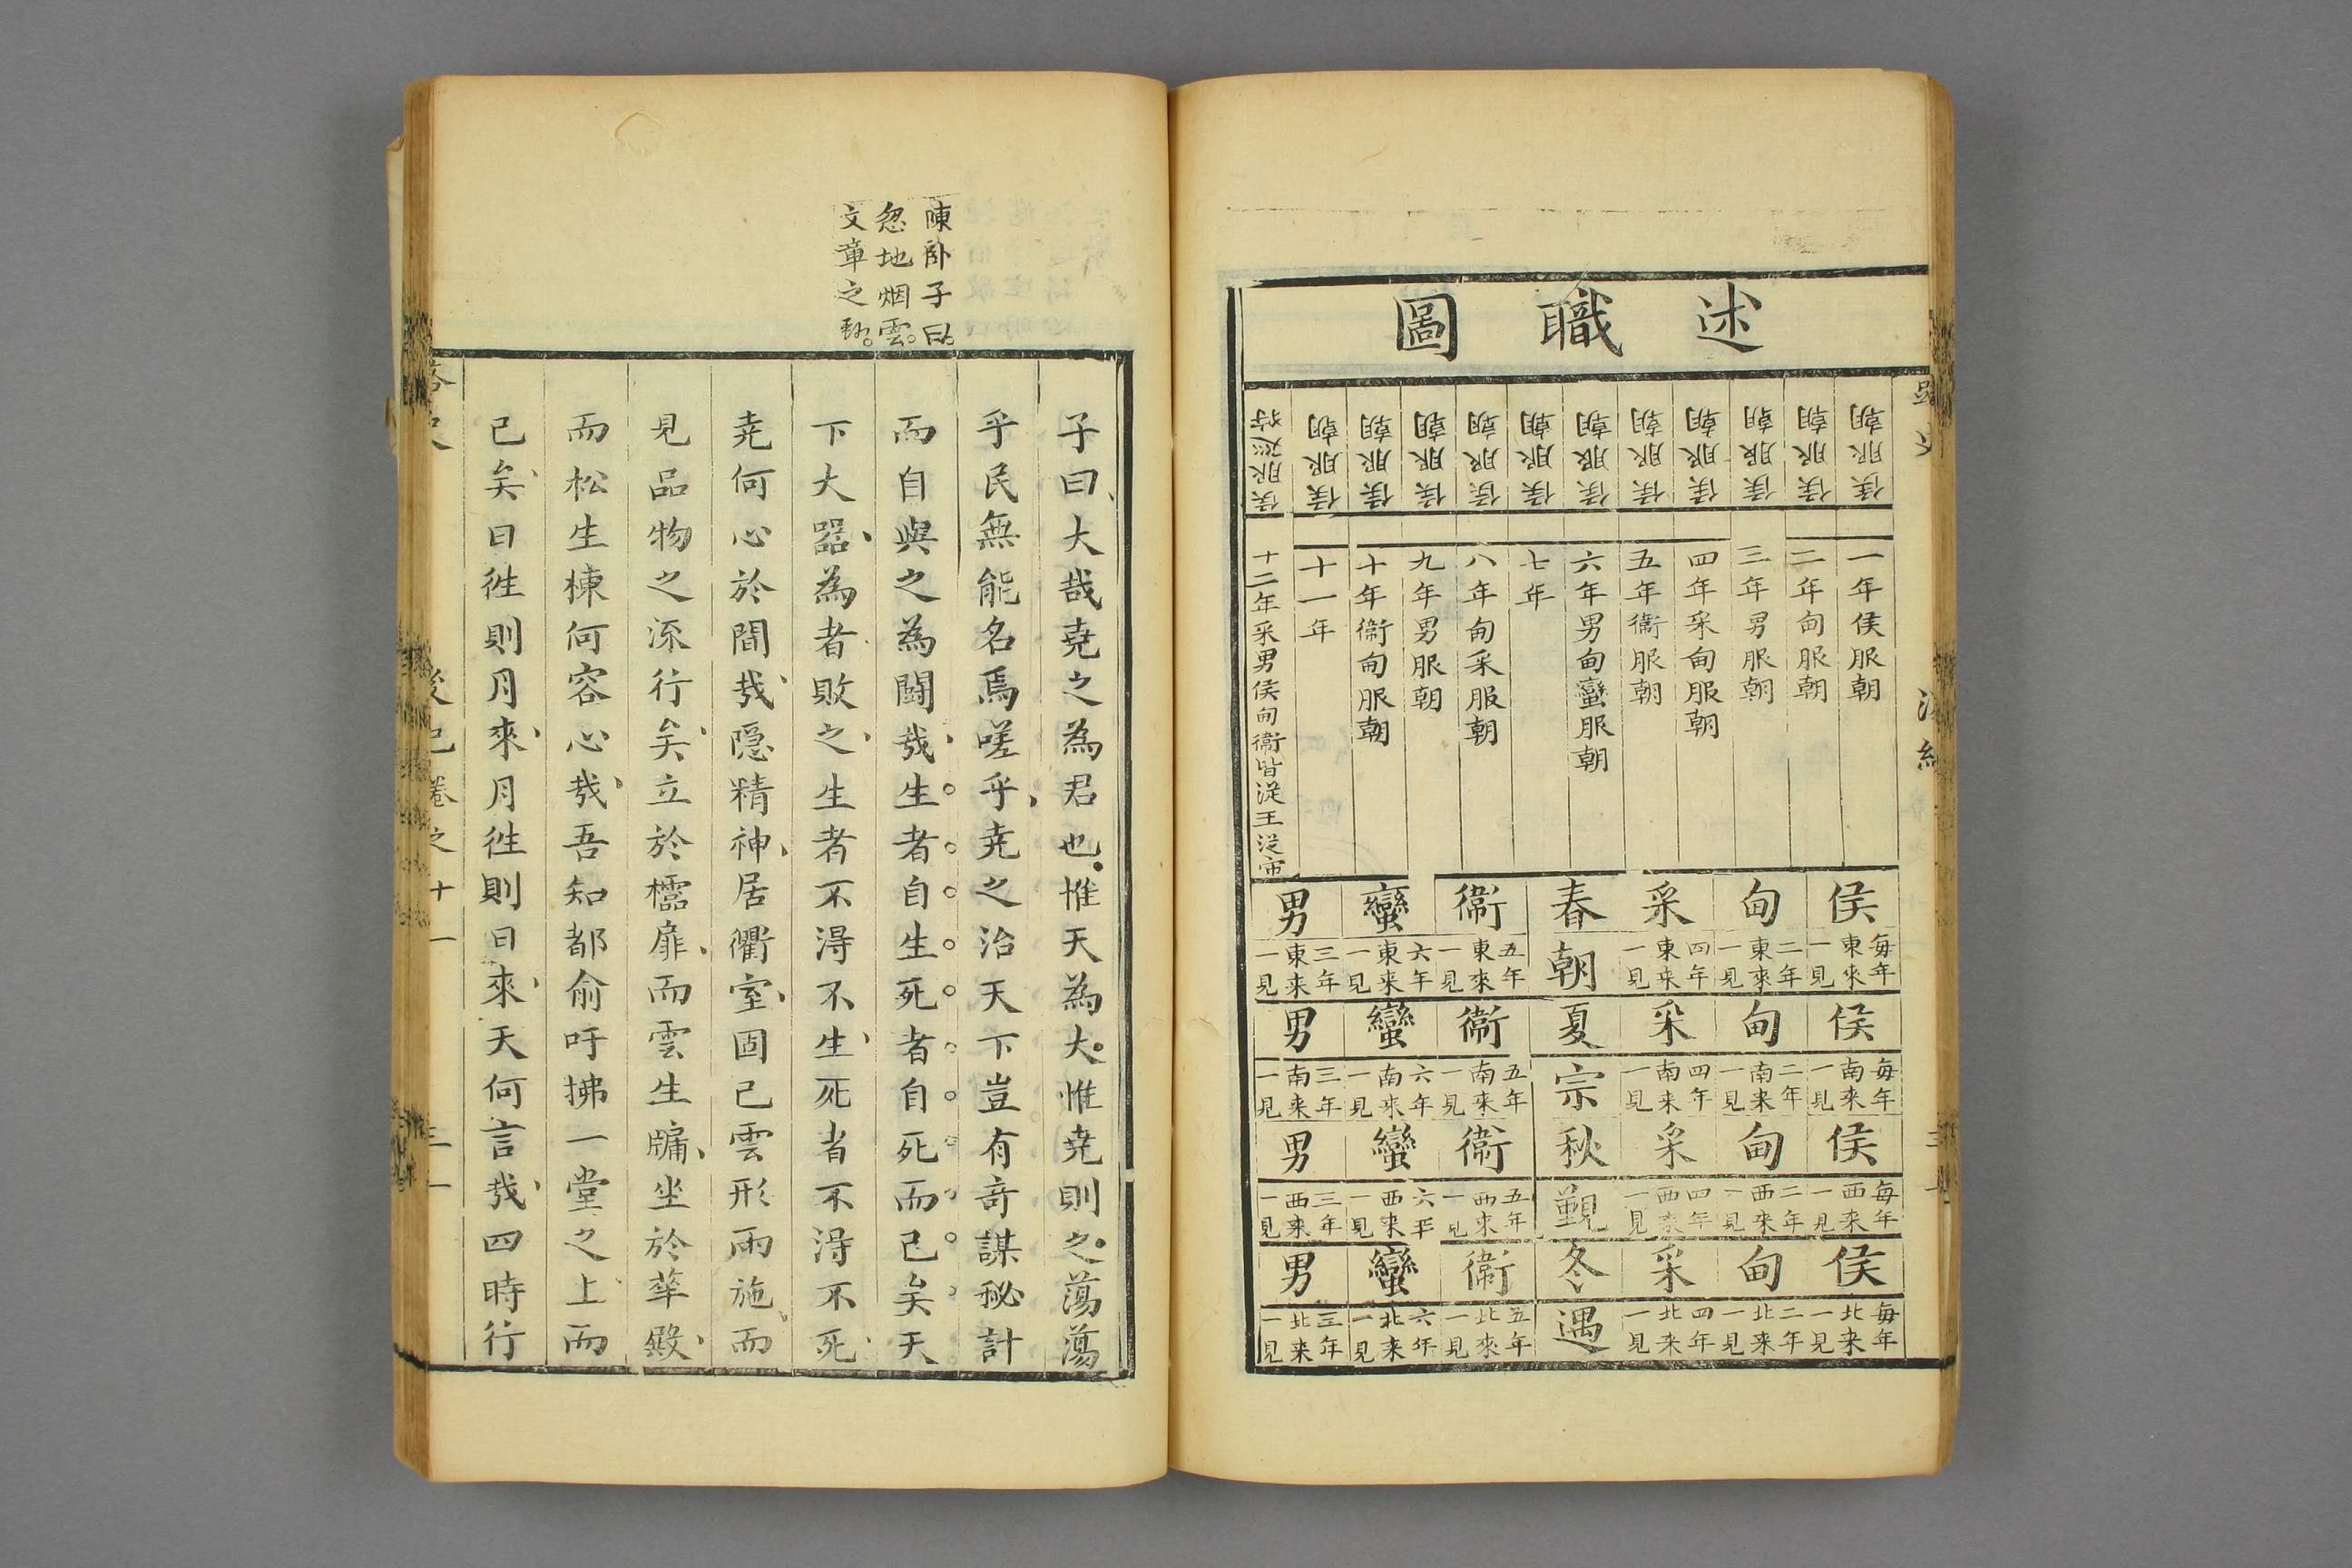 述職圖
侯服朝
侯服朝
侯服朝
侯服朝
侯服朝
侯服朝
侯服朝
侯服朝
侯服朝
侯服朝
侯服朝
侯服巡狩
一年侯服朝
二年甸服朝
三年男服朝
四年采甸服朝
五年衞服朝
六年男甸蠻服朝
七年
八年甸采服朝
九年男服朝
十年衞甸服朝
十一年
十二年采男侯甸衞皆從王巡守
侯 每年東來一見
甸 二年東來一見
采 四年東来一見
春朝
衞 五年東來一見
蠻 六年東来一見
男 三年東来一見
侯 每年南来一見
甸 二年南来一見
采 四年南来一見
夏宗
衞 五年南來一見
蠻 六年南来一見
男 三年南来一見
侯 每年西来一見
甸 二年西来一見
采 四年西来一見
秋覲
衞 五年西來一見
蠻 六年西来一見
男 三年西来一見
侯 每年北来一見
甸 二年北来一見
采 四年北来一見
冬遇
衞 五年北來一見
蠻 六年北来一見
男 三年北来一見
陳卧子曰。
忽地烟雲。
文章之㔟。
子曰、大哉堯之為君也。惟天為大。惟堯則之。蕩蕩
乎民無能名焉嗟乎、堯之治天下豈有奇謀秘計
而自與之為鬬哉、生者自生死者自死而已矣天
下大器、為者敗之、生者不得不生、死者不得不死、
堯何心於間哉、隠精神、居衢室、固已雲形雨施、而
見品物之流行矣、立於櫺扉、而雲生牖、坐於華殿、
而松生棟何容心哉、吾知都俞吁拂一堂之上而
已矣、日徃則月來、月徃則日來、天何言哉、四時行
後紀卷之十一